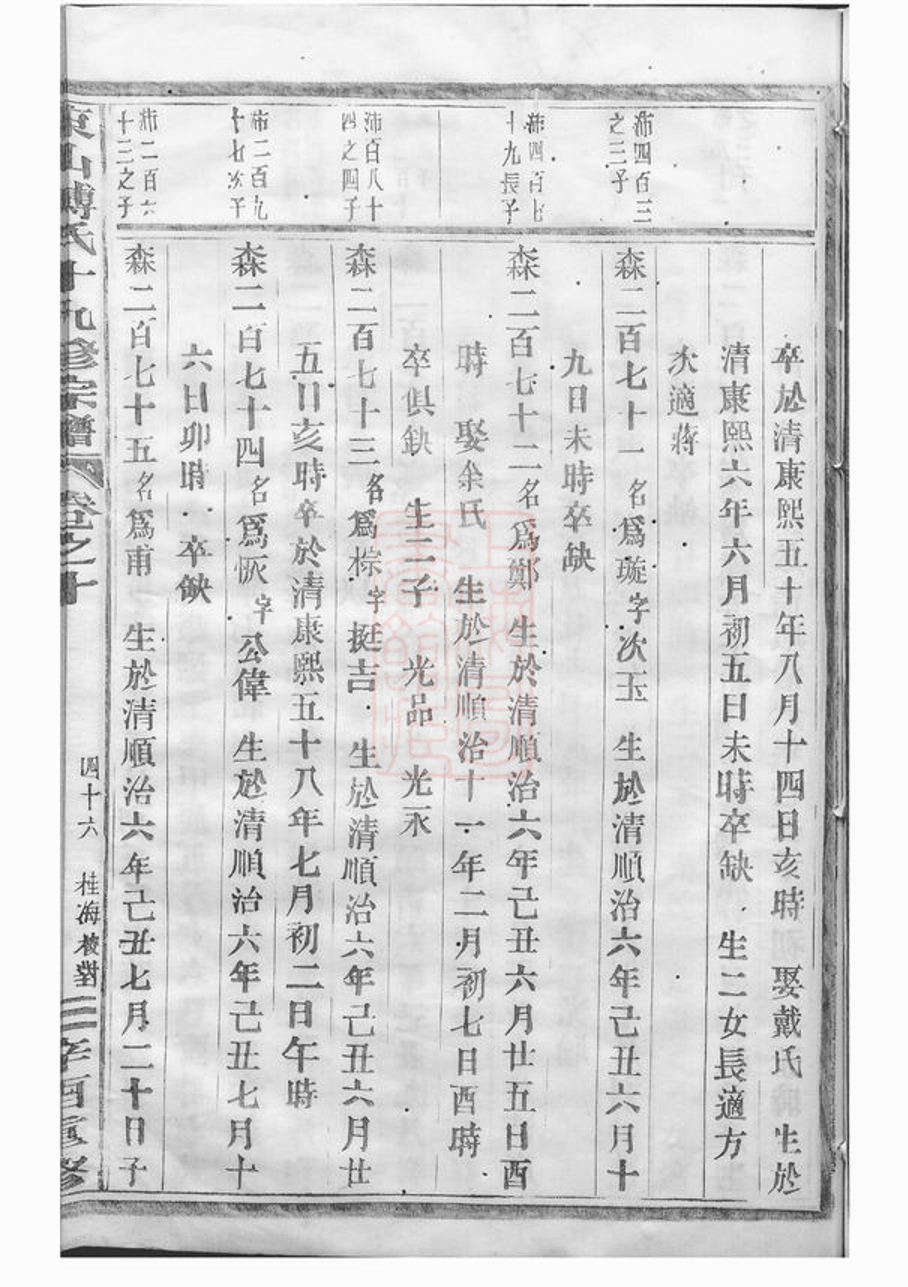 卒於清康熙五十年八月十四日亥時 娶戴氏 生於
清康熙六年六月初五日未時卒缺 生二女長適方
次適蔣
沛四百三
之三子
森二百七十一 名爲璇字次玉 生於清順治六年己丑六月十
九日未時卒缺
沛四百七
十九長子
森二百七十二 名爲鄭 生於清順治六年己丑六月廿五日酉
時 娶余氏 生於清順治十一年二月初七日酉時
卒俱缺 生二子 光品 光永
沛百八十
四之四子
森二百七十三 名爲棕字挺吉 生於清順治六年己丑六月廿
五日亥時卒於清康熙五十八年七月初二日午時
沛二百九
十七次子
森二百七十四 名爲恢字公偉 生於清順治六年己丑七月十
六日卯時 卒缺
沛二百六
十三之子
森二百七十五 名爲甫 生於清順治六年己丑七月二十日子
東山傅氏十九修宗譜 卷之十
四十六 桂海校對
辛酉重修